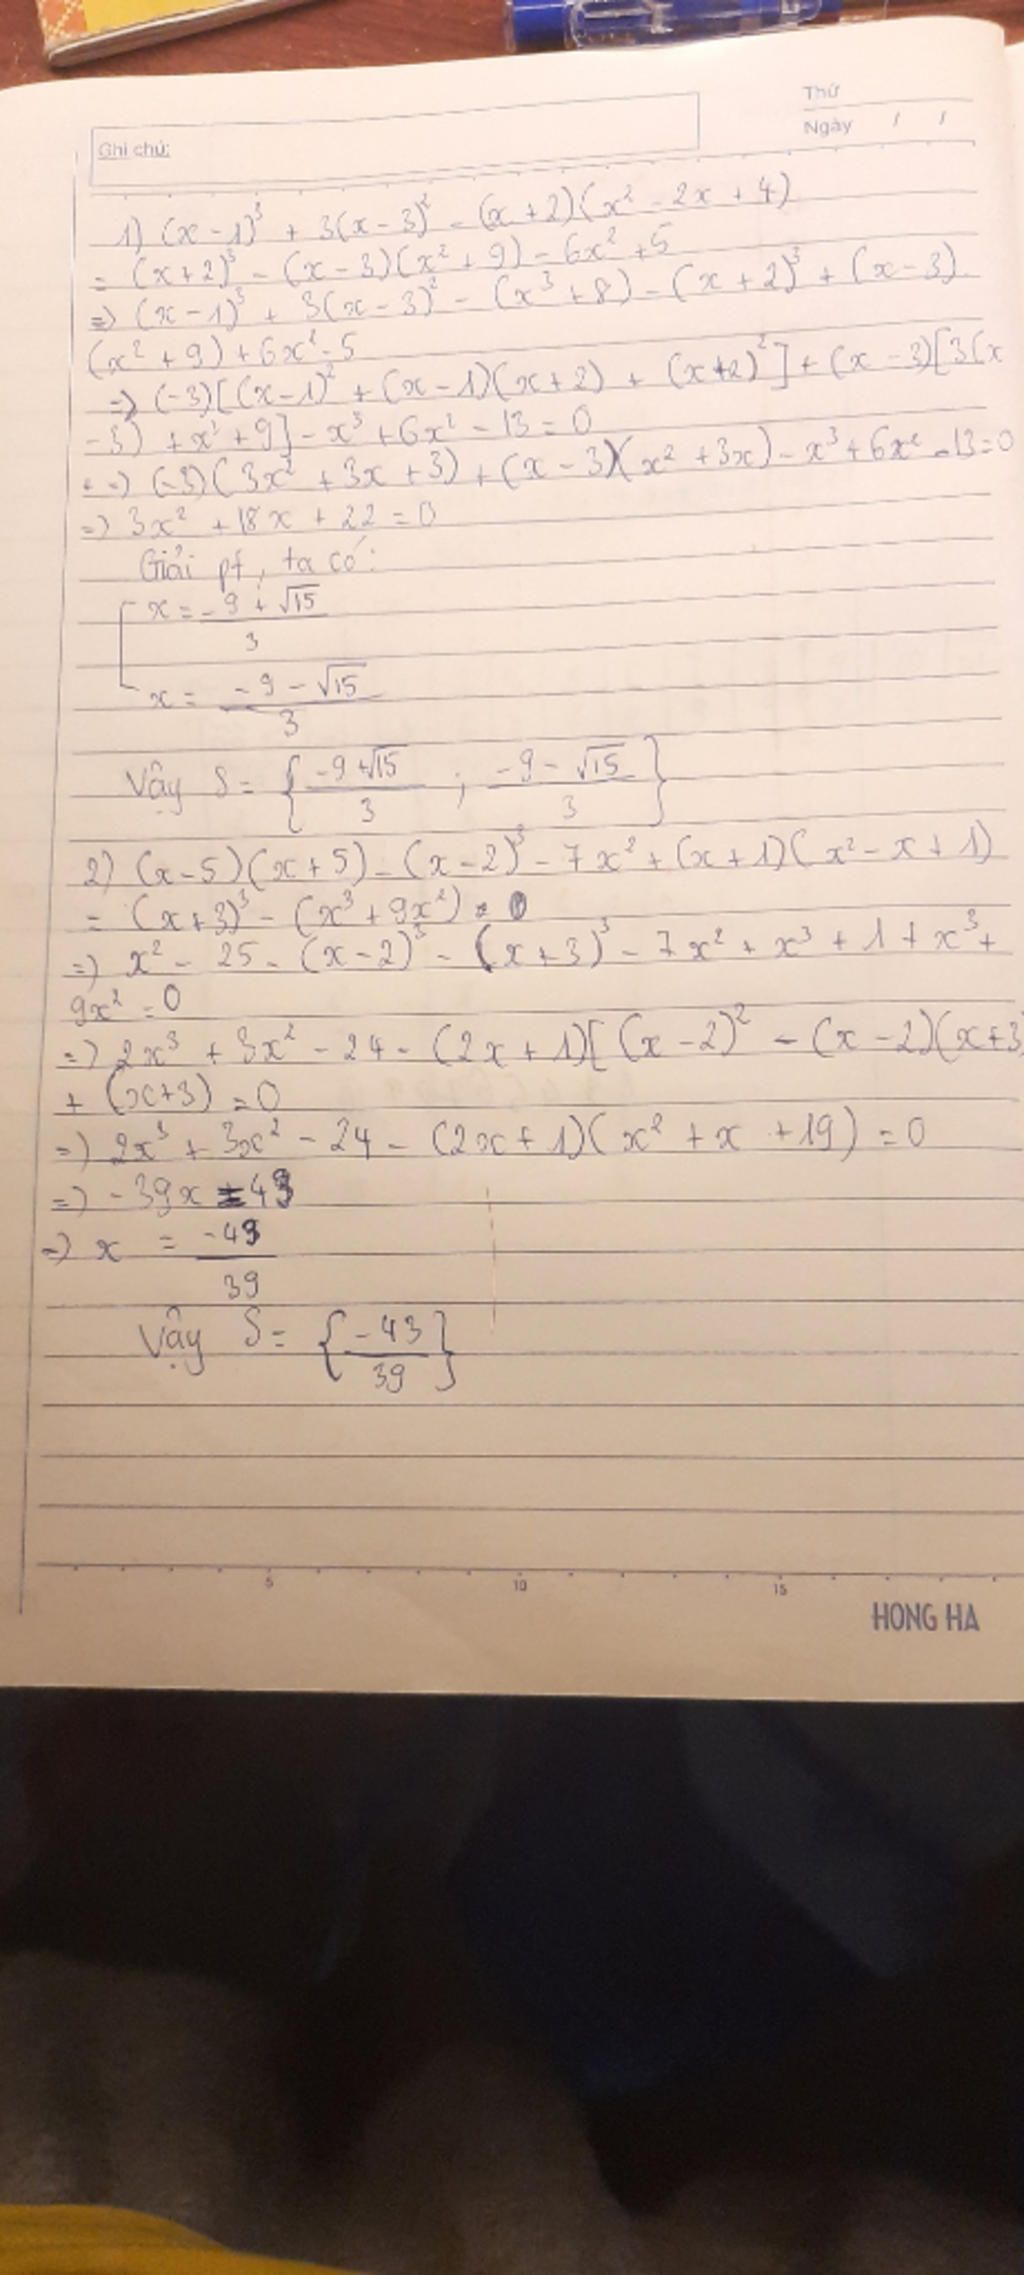 Thứ
Ngày / /
Ghi chú:
1) (x-1)³ + 3(x-3)² - (x+2)(x² - 2x + 4)
= (x+2)³ - (x-3)(x² + 9) - 6x² + 5
=> (x-1)³ + 3(x-3)² - (x³ + 8) - (x+2)³ + (x-3)
(x² + 9) + 6x² - 5
=> (-3)[(x-1)² + (x-1)(x+2) + (x+2)²] + (x-3)[3(x
-3) + x² + 9] - x³ + 6x² - 13 = 0
=> (-3)(3x² + 3x + 3) + (x-3)(x² + 3x) - x³ + 6x² - 13 = 0
=> 3x² + 18x + 22 = 0
Giải pt, ta có:
x = -9 + √15
3
x = -9 - √15
3
Vậy S = { -9+√15 / 3 ; -9-√15 / 3 }
2) (x-5)(x+5) - (x-2)³ - 7x² + (x+1)(x² - x + 1)
= (x+3)³ - (x³ + 9x²)
=> x² - 25 - (x-2)³ - (x+3)³ - 7x² + x³ + 1 + x³ +
9x² = 0
=> 2x³ + 3x² - 24 - (2x+1)[(x-2)² - (x-2)(x+3)
+ (x+3) = 0
=> 2x³ + 3x² - 24 - (2x+1)(x² + x + 19) = 0
=> -39x = 43
=> x = -43
39
Vậy S = { -43 / 39 }
5 10 15
HONG HA